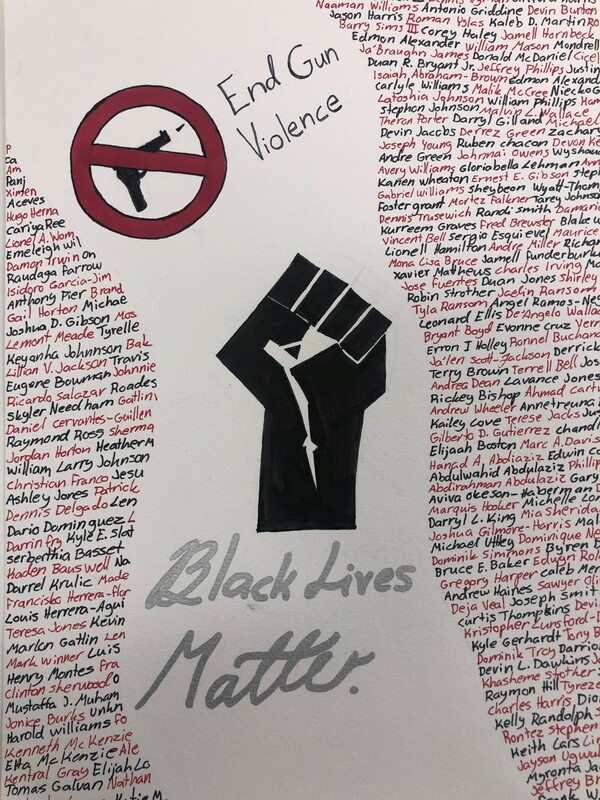 End Gun
Violence
Black Lives
Matter.
Am
Aceves
Hugo Herna
Cariya Ree
Lionel A. Wom
Emeleigh Wil
Damon Irwin on
Raudaga Farrow
Isidoro Garcia-Jim
Anthony Pier Brand
Gail Horton Michae
Joshua D. Gibson Mos
Lemont Meade Tyrelle
Keyanha Johnnson Bak
Lillian V. Jackson Travis
Eugene Bowman Johnnie
Ricardo Salazar Roades
Skyler Needham Gatlin
Daniel Cervantes-Guillen
Raymond Ross Sherma
Jordan Horton Heather M
William Larry Johnson
Christian Franco Jesu
Ashley Jones Patrick
Dennis Delgado Len
Dario Dominguez L
Darrin Fry Kyle E. Slat
Serberthia Basset
Kaden Bauswell Na
Darrel Krulic Made
Francisko Herrera-Flor
Louis Herrera-Agui
Teresa Jones Kevin
Marlon Gatlin Len
Mark Winner Luis
Henry Montes Fra
Clinton Sherwood O
Mustaffa J. Muham
Janice Burks Unkn
Harold Williams Fo
Kenneth McKenzie
Etta McKenzie Ale
Kentral Gray Elijah Lo
Tomas Galvan Nathan
Naaman Williams Antonio Griddine Devin Burton
Jason Harris Roman Yslas Kaleb D. Martin Ro
Barry Sims III Corey Haley Jamell Hornbeck
Edmon Alexander William Mason Mondrell
Ja'Braughn James Donald McDaniel Cicel
Duan R. Bryant Jr. Jeffrey Phillips Justin
Isaiah Abraham-Brown Edmon Alexand
Carlyle Williams Malik McCree Niecko G
Latoshia Johnson William Phillips Ham
Stephon Johnson Malvin L. Wallace
Theron Porter Darryl Gilland Michael
Devin Jacobs Derrez Green Zachary
Joseph Young Ruben Chacon Devon Ke
Andre Green Johnnai Owens Wyshow
Avery Williams Gloriabella Lehman Ann
Kanen Wheaton Ernest E. Gibson Steph
Gabriel Williams Sheybeon Wyatt-Thom
Foster grant Mortez Falkner Tarey Johnson
Dennis Trusewich Randi Smith Damario
Kurreem Graves Fred Brewster Blake W
Vincent Bell Sergio Esquievel Maurice
Lionell Hamilton Andre Miller Richar
Mona Lisa Bruce Jamell Funderburk
Xavier Mathews Charles Irving Mo
Jose Fuentes Duan Jones Shirley
Robin Strother Jaekin Ransom
Tyla Ransom Angel Ramos-Neg
Leonard Ellis De'Angelo Wallace
Bryant Boyd Evonne Cruz Vern
Erron I Holley Ronnel Buchanan
Ja'len Scott-Jackson Derrick
Terry Brown Terrell Bell Jos
Andrea Dean Lavance Jones
Rickey Bishop Ahmad Carte
Andrew Wheeler Annetreuna
Kailey Love Terese Jacks Jus
Gilberto D. Gutierrez Chand
Elijaah Boston Marc A. Davis
Hanad A. Abdiaziz Edwin Co
Abdulwahid Abdulaziz Phillip
Abdirahman Abdulaziz Gary
Aviva Okeson-Haberman D
Marquis Hooker Michelle Lor
Darryl L. King Mia Sherida
Joshua Gilmore-Harris Mal
Michael Uttley Dominique Ne
Dominik Simmons Byren D
Bruce E. Baker Eduard Rol
Gregory Harper Caleb Mer
Andrew Haines Sawyer Oli
Deja Veal Joseph Smit
Curtis Thompkins Devi
Kristopher Lunsford-D
Kyle Gerhardt Tony B
Dominik Troy Darrio
Devin L. Dawkins Ja
Khasheme Stother
Raymon Hill Tyreze
Charles Harris Dio
Kelly Randolph S
Rontez Stephen
Keith Cars Lin
Jayson Ugwu
Myronta Ja
Jeffrey Br